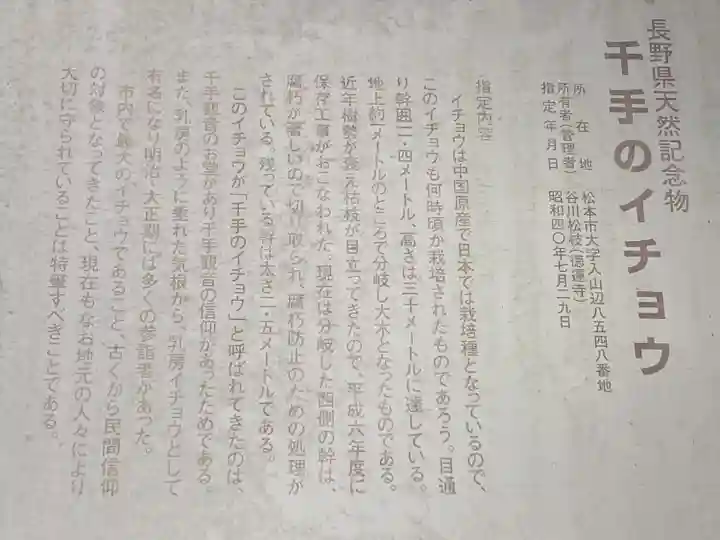 長野県天然記念物
千手のイチョウ
所在地　松本市大字入山辺八五四八番地
所有者(管理者)　谷川松枝(徳運寺)
指定年月日　昭和四〇年七月二九日
指定内容
イチョウは中国原産で日本では栽培種となっているので、
このイチョウも何時頃か栽培されたものであろう。目通
り幹囲一一・四メートル、高さは三十メートルに達している。
地上約一メートルのところで分岐し大木となったものである。
近年樹勢が衰え枯枝が目立ってきたので、平成六年度に
保存工事がおこなわれた。現在は分岐した西側の幹は、
腐朽が著しいので切り取られ、腐朽防止のための処理が
されている。残っている幹は太さ二・五メートルである。
このイチョウが「千手のイチョウ」と呼ばれてきたのは、
千手観音のお堂があり千手観音の信仰があったためである。
また、乳房のように垂れた気根から、乳房イチョウとして
有名になり明治・大正期には多くの参詣者があった。
市内で最大のイチョウであること、古くから民間信仰
の対象となってきたこと、現在もなお地元の人々により
大切に守られていることは特筆すべきことである。